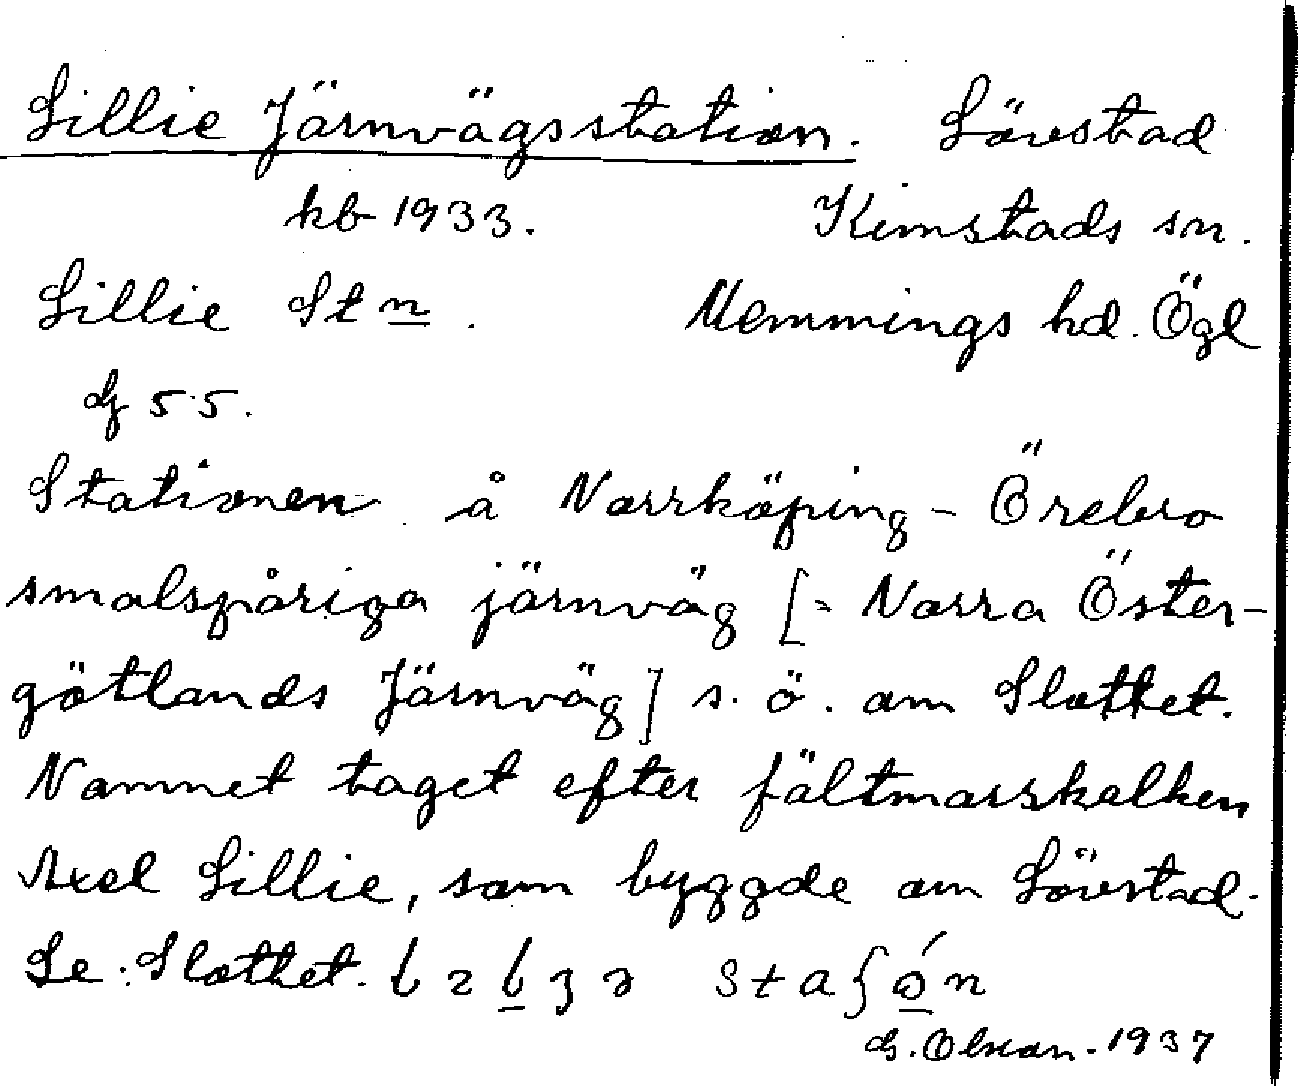 Lillie Järnvägsstation. Lövestad
hb 1933. Kimstads sn.
Lillie Stn. Memmings hd. Ögl
df 55.
Stationen å Norrköping - Örebro
smalspåriga järnväg [= Norra Öster-
götlands Järnväg] s. ö. om Slottet.
Namnet taget efter fältmarskalken
Axel Lillie, som byggde om Lövestad.
Se: Slottet. staʃón
G. Olson. 1937